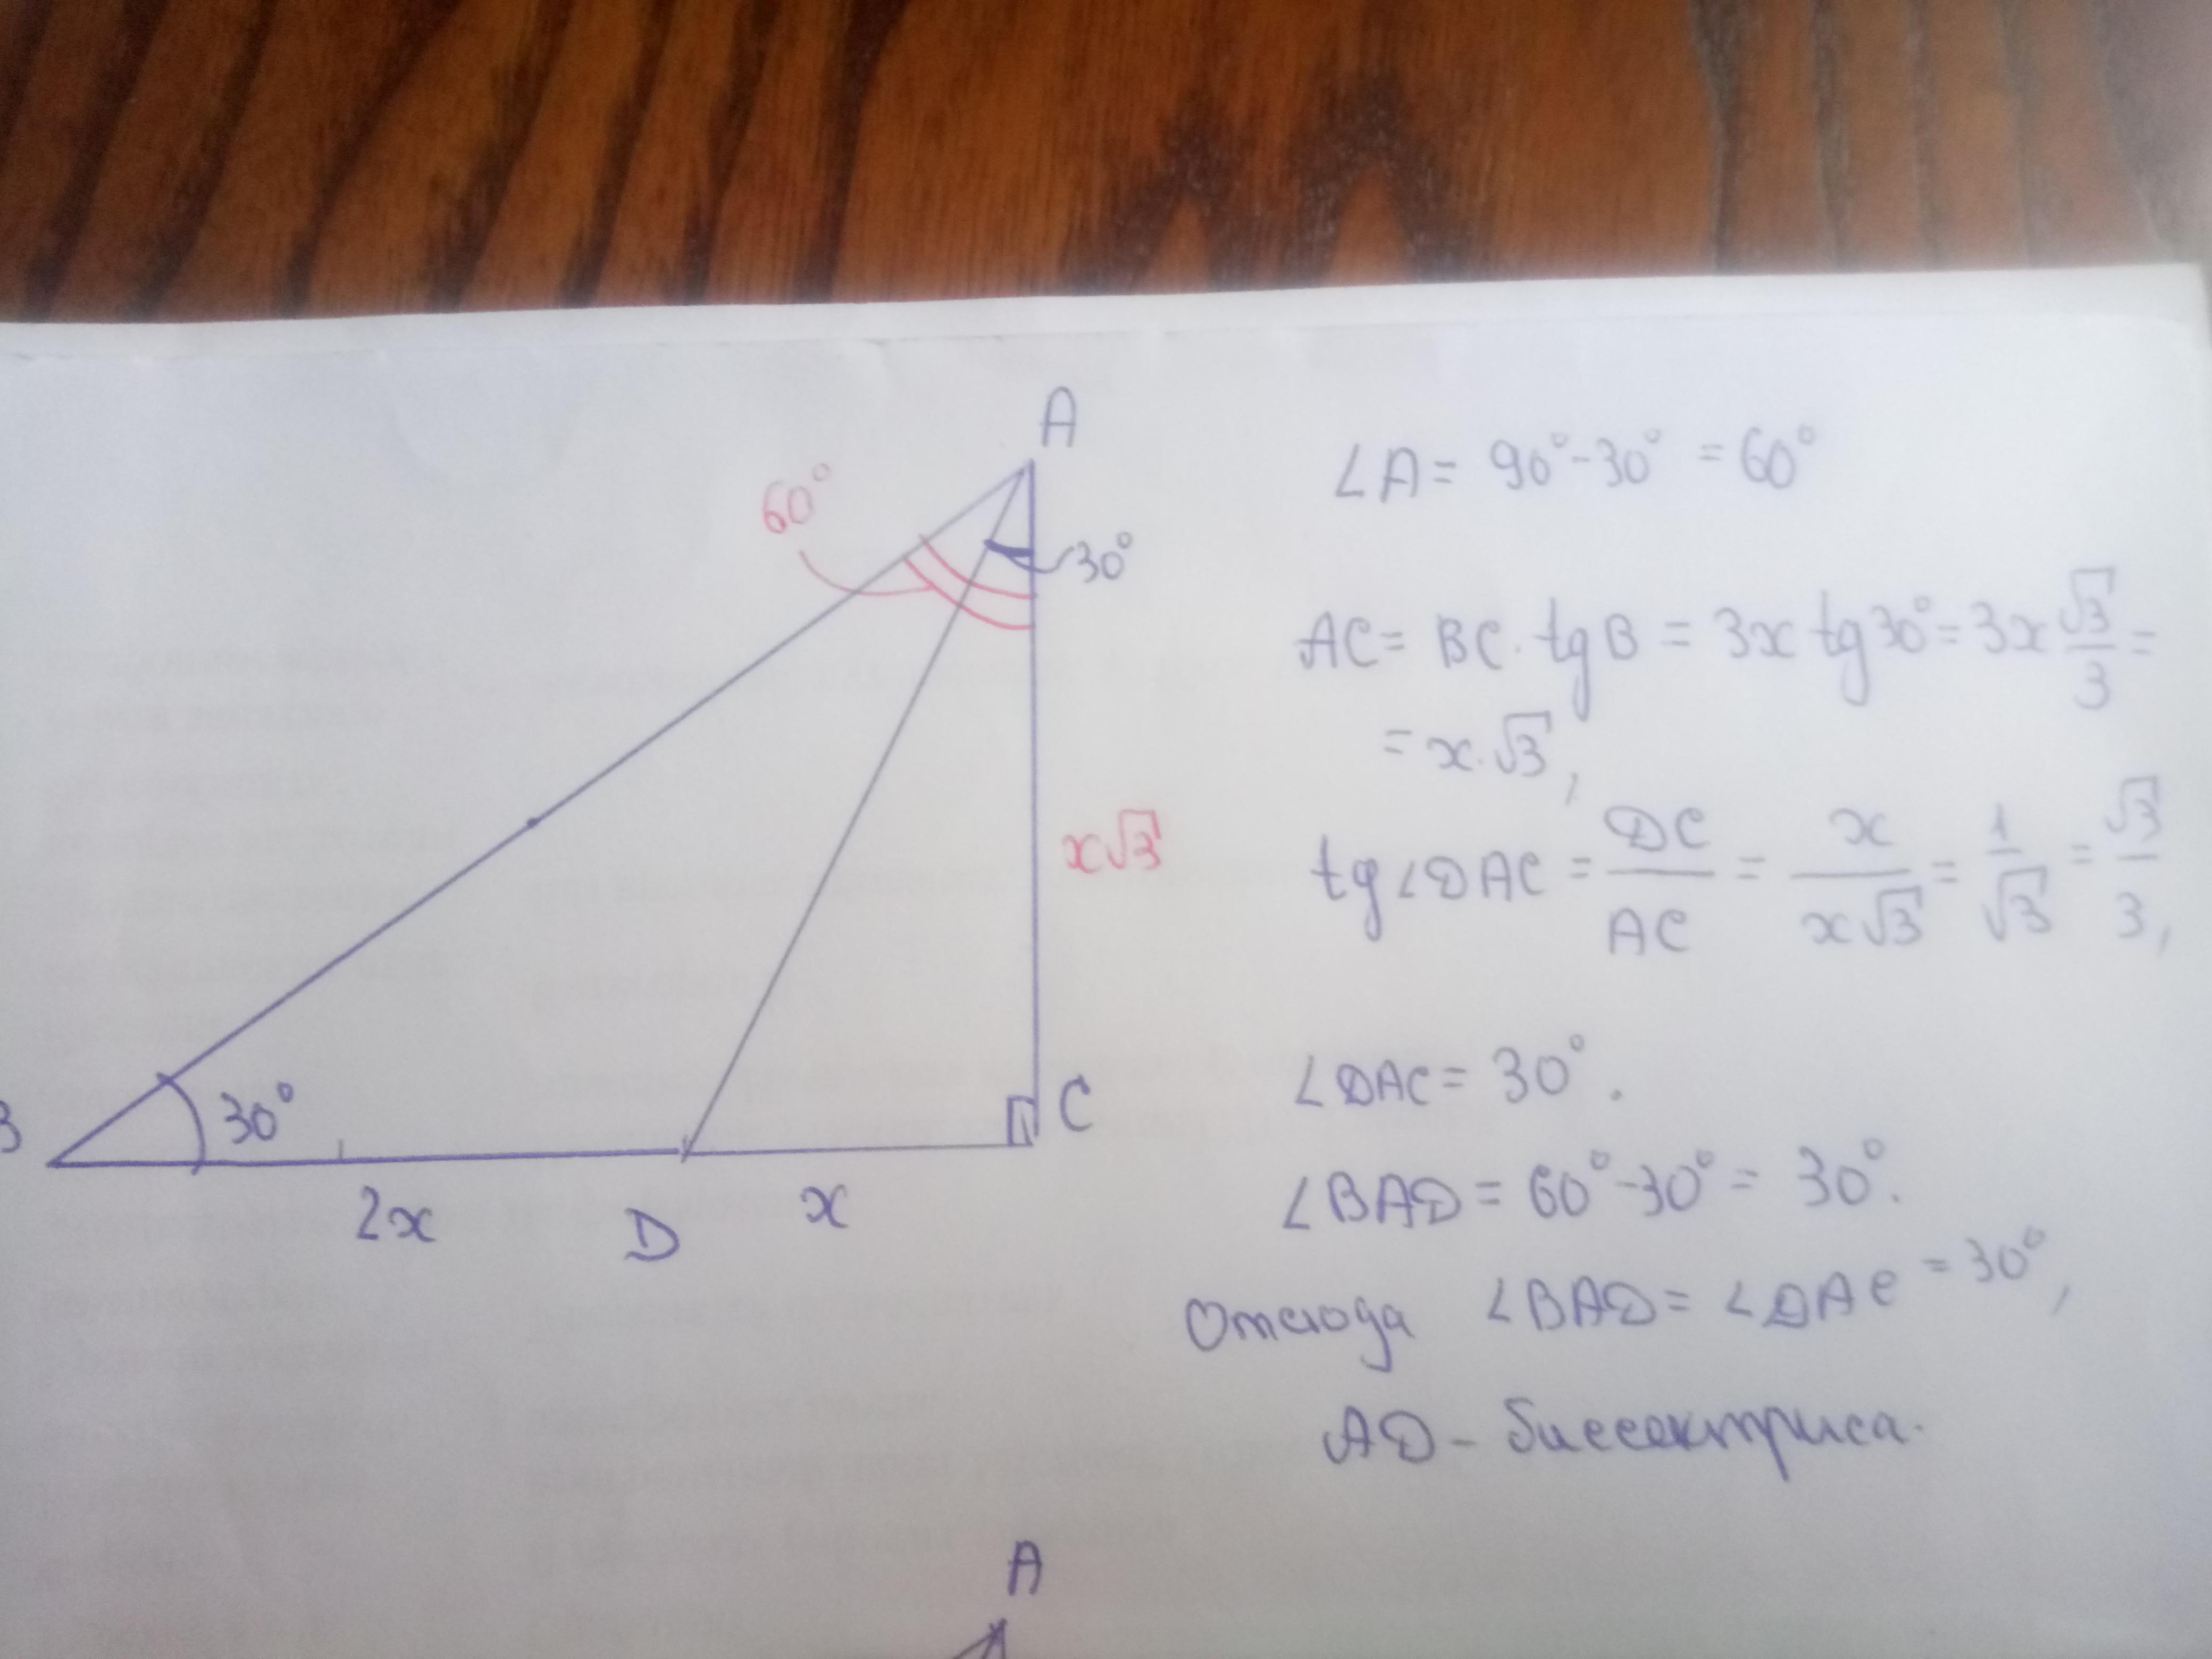 A
60°
30°
x√3
B
30°
C
2x
D
x
∠A = 90° - 30° = 60°
AC = BC · tg B = 3x tg 30° = 3x √3/3 =
= x · √3,
tg ∠DAC = DC/AC = x/x√3 = 1/√3 = √3/3,
∠DAC = 30°.
∠BAD = 60° - 30° = 30°.
Отсюда ∠BAD = ∠DAC = 30°,
AD - биссектриса.
A